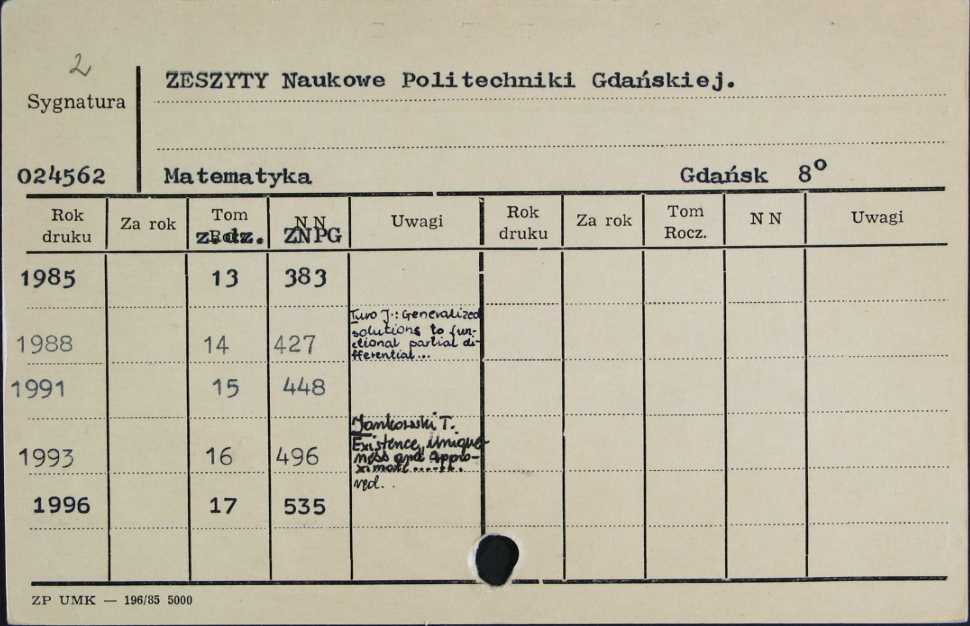 2
ZESZYTY Naukowe Politechniki Gdańskiej.
Sygnatura
024562 Matematyka Gdańsk 8º
Rok druku Za rok Tom Rocz. N N Uwagi Rok druku Za rok Tom Rocz. N N Uwagi
z.dz. ZNPG
1985 13 383
1988 14 427 Turo J.: Generalized
solutions to fun-
ctional partial di-
fferential...
1991 15 448
1993 16 496 Jankowski T.
Existence, Unique-
ness and Appro-
ximate.......
red..
1996 17 535
ZP UMK — 196/85 5000